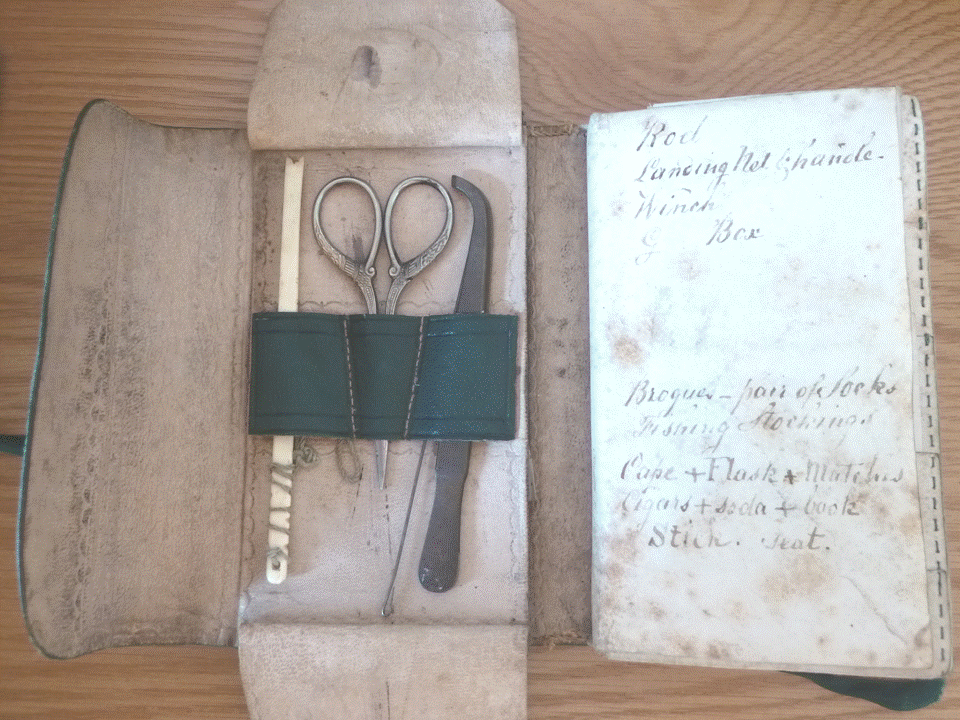 Rod
Landing Net & handle.
Winch
Box
Brogues - pair of Socks
Fishing Stockings.
Cape + Flask + Matches
Cigars + soda + book
Stick. seat.